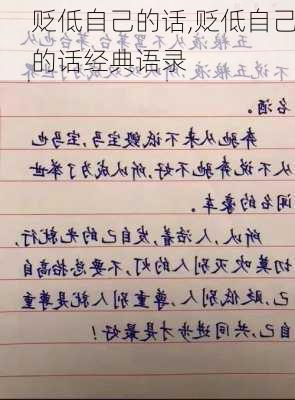 贬低自己的话,贬低自己
的话经典语录
五粮液从不骂茅台茅台也从
不说五粮液
名酒。
奔驰从来不诋毁宝马,宝马也
从不说奔驰不好,所以,成为了举世
闻名的豪车。
所以,人活着,发自己的光就行,
切莫吹灭别人的灯,不要总抬高自
己,贬低别人,尊重别人就是尊重
自己,共同进步才是最好!